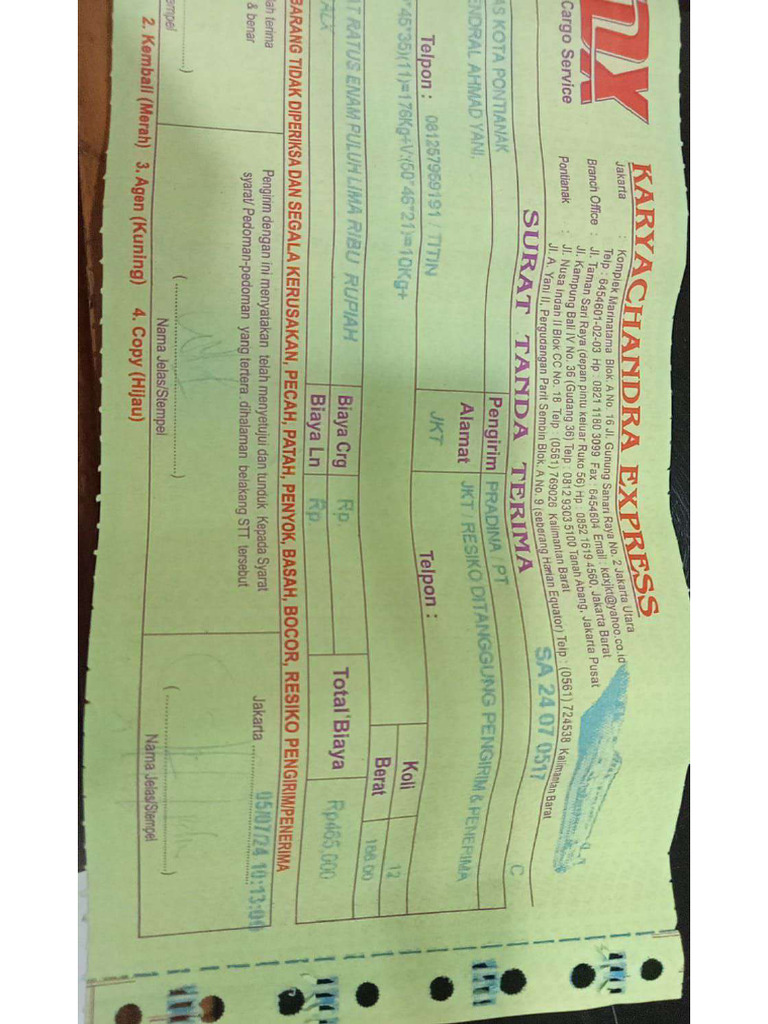 NX
Cargo Service
KARYACHANDRA EXPRESS
Jakarta : Komplek Marinatama Blok. A No. 16 Jl. Gunung Sahari Raya No. 2 Jakarta Utara
Telp : 6454601-02-03 Hp : 0821 1180 3099 Fax : 6454604 Email : kdxjkt@yahoo.co.id
Branch Office : Jl. Taman Sari Raya (depan pintu keluar Ruko 56) Hp : 0852 1619 4560, Jakarta Barat
Jl. Kampung Bali IV No. 36 (Gudang 36) Telp : 0812 9303 5100 Tanah Abang, Jakarta Pusat
Pontianak : Jl. Nusa Indah II Blok CC No. 18 Telp : (0561) 769026 Kalimantan Barat
Jl. A. Yani II, Pergudangan Parit Sembin Blok. A No. 9 (seberang Harian Equator) Telp : (0561) 724538 Kalimantan Barat
SURAT TANDA TERIMA
SA 24 07 0517
C
AS KOTA PONTIANAK
Pengirim PRADINA , PT
ENDRAL AHMAD YANI,
Alamat JKT / RESIKO DITANGGUNG PENGIRIM & PENERIMA
JKT
Telpon : 081257969191 / TITIN
Telpon :
*45*35)(11)=176Kg+V:(50*46*21)=10Kg+
Koli 12
Berat 186.00
AT RATUS ENAM PULUH LIMA RIBU RUPIAH
Biaya Crg Rp.
Biaya Ln Rp.
Total Biaya Rp465,000
BARANG TIDAK DIPERIKSA DAN SEGALA KERUSAKAN, PECAH, PATAH, PENYOK, BASAH, BOCOR, RESIKO PENGIRIM/PENERIMA
lah terima
& benar
Pengirim dengan ini menyatakan telah menyetujui dan tunduk Kepada Syarat
syarat/ Pedoman-pedoman yang tertera dihalaman belakang STT tersebut
Jakarta 05/07/24 10:13:00
tempel
Nama Jelas/Stempel
Nama Jelas/Stempel
2. Kembali (Merah) 3. Agen (Kuning) 4. Copy (Hijau)